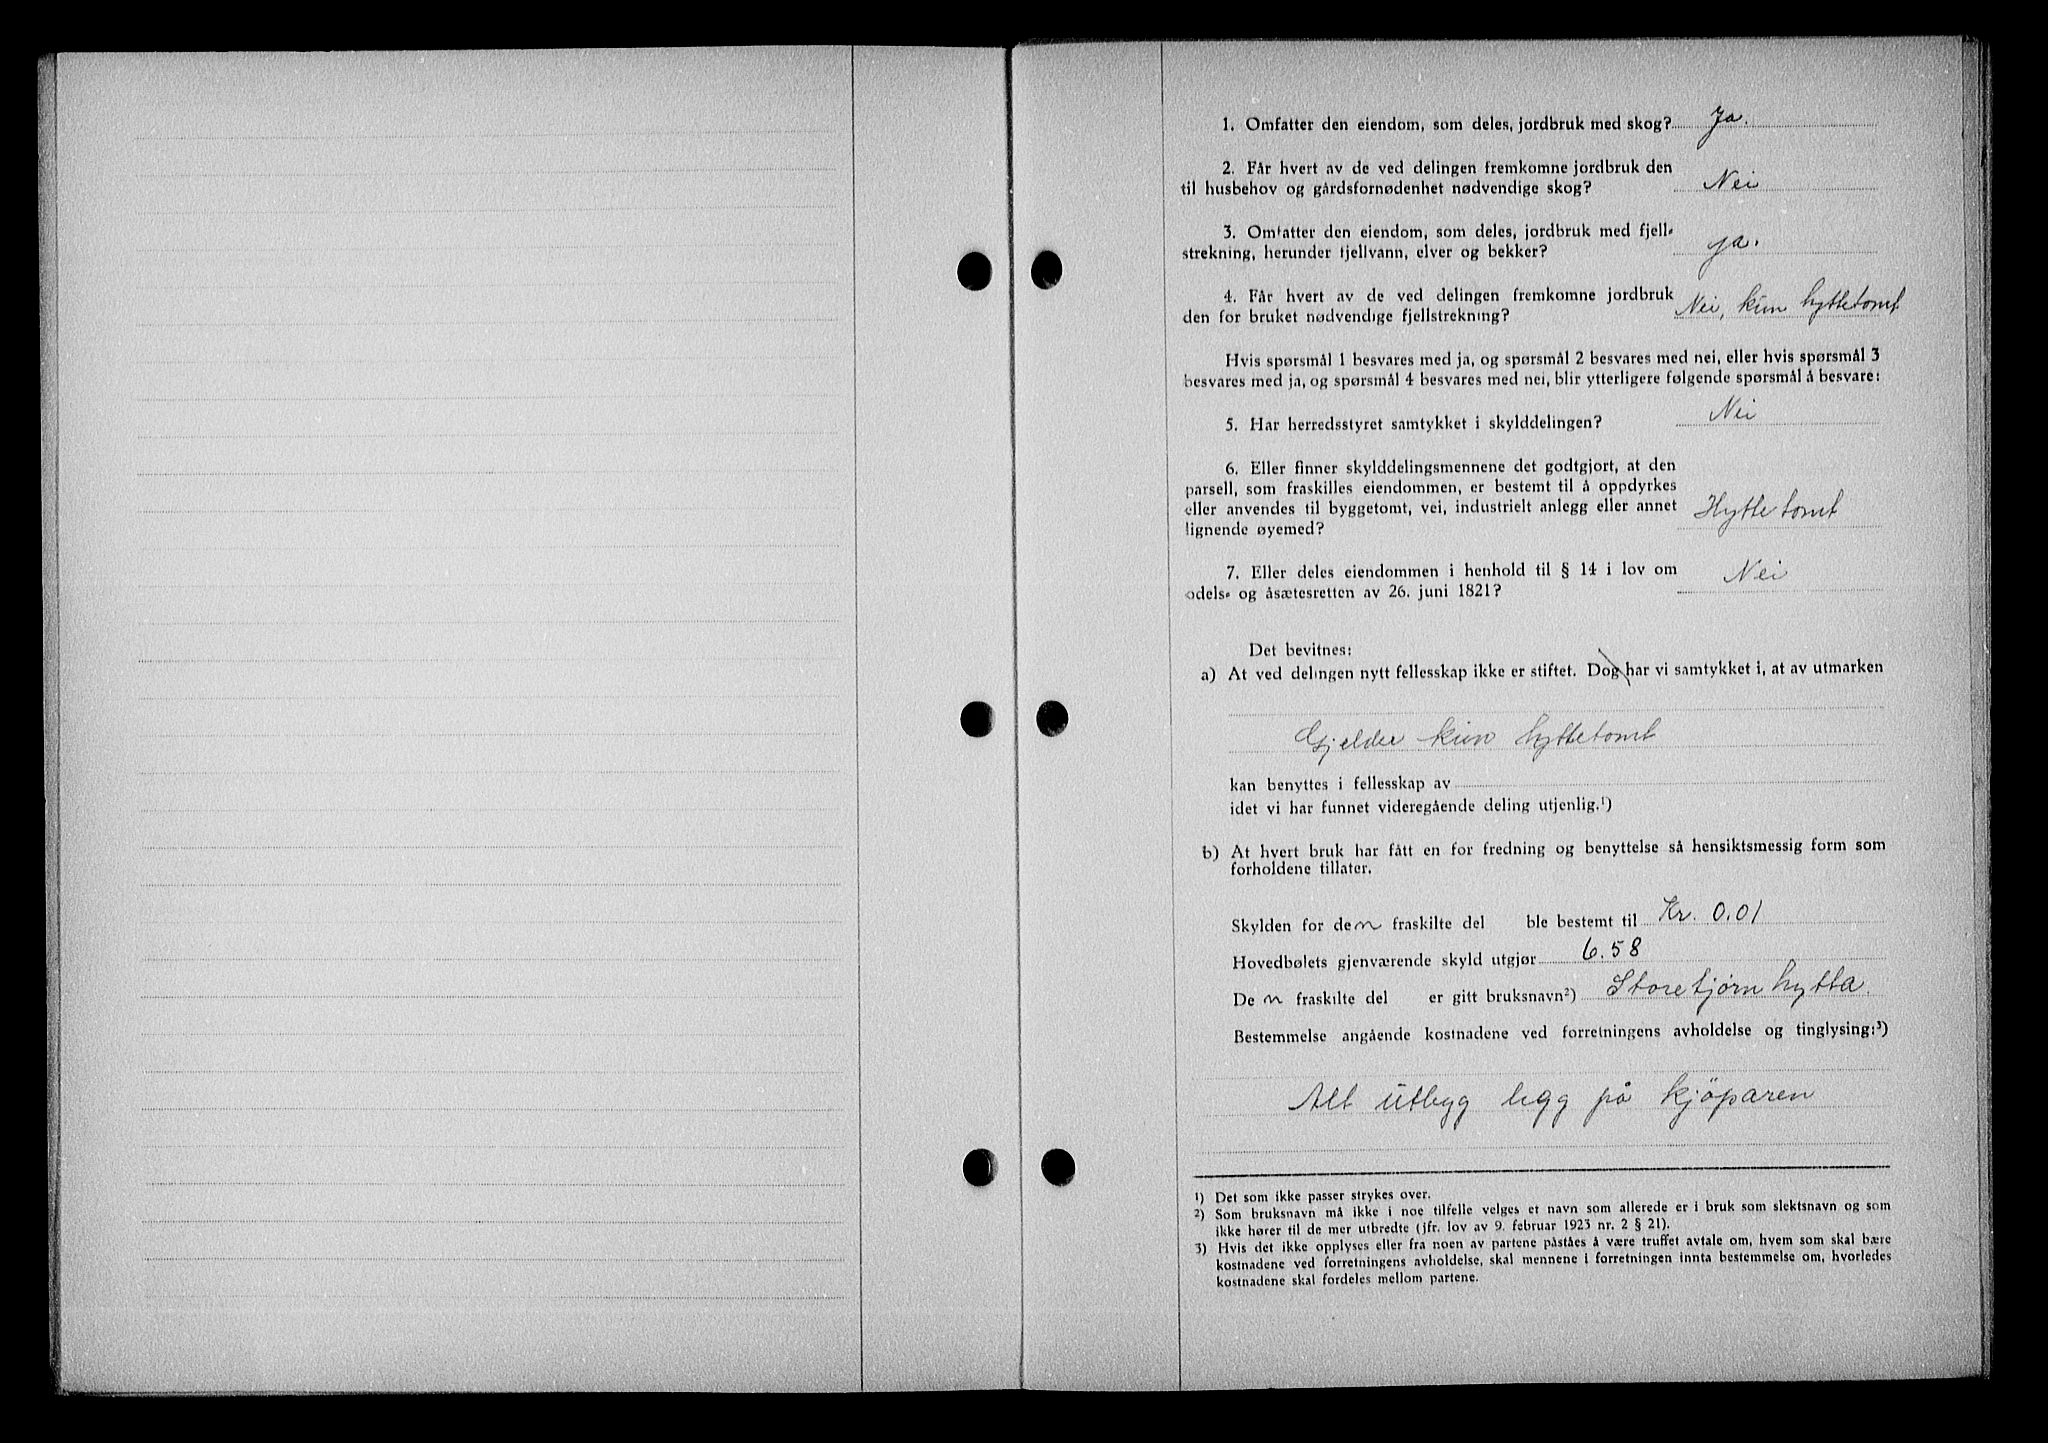 1. Omfatter den eiendom, som deles, jordbruk med skog? Ja.
2. Får hvert av de ved delingen fremkomne jordbruk den
til husbehov og gårdsfornødenhet nødvendige skog? Nei
3. Omfatter den eiendom, som deles, jordbruk med fjell-
strekning, herunder fjellvann, elver og bekker? ja.
4. Får hvert av de ved delingen fremkomne jordbruk
den for bruket nødvendige fjellstrekning? Nei, kun hyttetomt
Hvis spørsmål 1 besvares med ja, og spørsmål 2 besvares med nei, eller hvis spørsmål 3
besvares med ja, og spørsmål 4 besvares med nei, blir ytterligere følgende spørsmål å besvare:
5. Har herredsstyret samtykket i skylddelingen? Nei
6. Eller finner skylddelingsmennene det godtgjort, at den
parsell, som fraskilles eiendommen, er bestemt til å oppdyrkes
eller anvendes til byggetomt, vei, industrielt anlegg eller annet
lignende øyemed? Hyttetomt
7. Eller deles eiendommen i henhold til § 14 i lov om
odels- og åsætesretten av 26. juni 1821? Nei
Det bevitnes:
a) At ved delingen nytt fellesskap ikke er stiftet. Dog har vi samtykket i, at av utmarken
Gjelder kun hyttetomt
kan benyttes i fellesskap av
idet vi har funnet videregående deling utjenlig.¹)
b) At hvert bruk har fått en for fredning og benyttelse så hensiktsmessig form som
forholdene tillater.
Skylden for den fraskilte del ble bestemt til Kr. 0.01
Hovedbølets gjenværende skyld utgjør 6.58
Den fraskilte del er gitt bruksnavn²) Storetjørnhytta.
Bestemmelse angående kostnadene ved forretningens avholdelse og tinglysing:³)
Alt utlegg legg på kjöparen
¹) Det som ikke passer strykes over.
²) Som bruksnavn må ikke i noe tilfelle velges et navn som allerede er i bruk som slektsnavn og som
ikke hører til de mer utbredte (jfr. lov av 9. februar 1923 nr. 2 § 21).
³) Hvis det ikke opplyses eller fra noen av partene påståes å være truffet avtale om, hvem som skal bære
kostnadene ved forretningens avholdelse, skal mennene i forretningen innta bestemmelse om, hvorledes
kostnadene skal fordeles mellom partene.